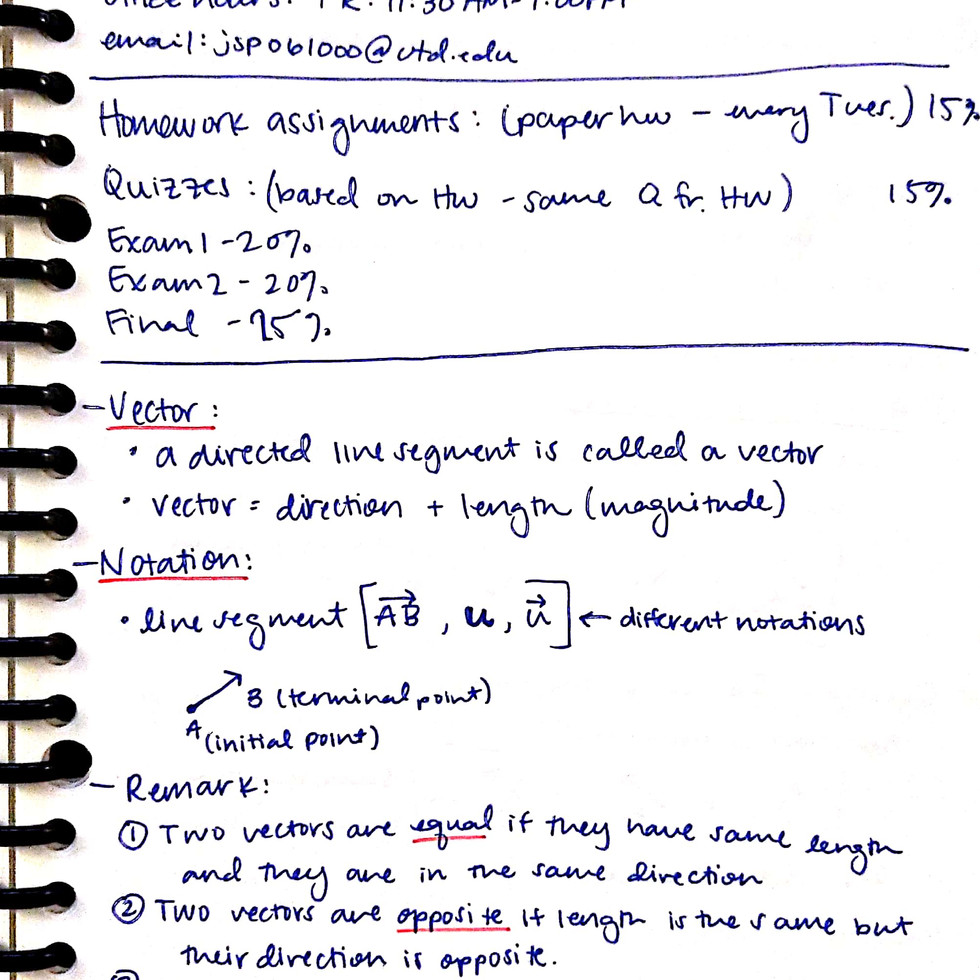 email: jsp061000@utd.edu
Homework assignments: (paper hw - every Tues.) 15%
Quizzes: (based on HW - same Q fr. HW) 15%
Exam 1 - 20%
Exam 2 - 20%
Final - 25%
- Vector:
• a directed line segment is called a vector
• vector = direction + length (magnitude)
- Notation:
• line segment [AB, u, u] ← different notations
B (terminal point)
A (initial point)
- Remark:
① Two vectors are equal if they have same length
and they are in the same direction
② Two vectors are opposite if length is the same but
their direction is opposite.